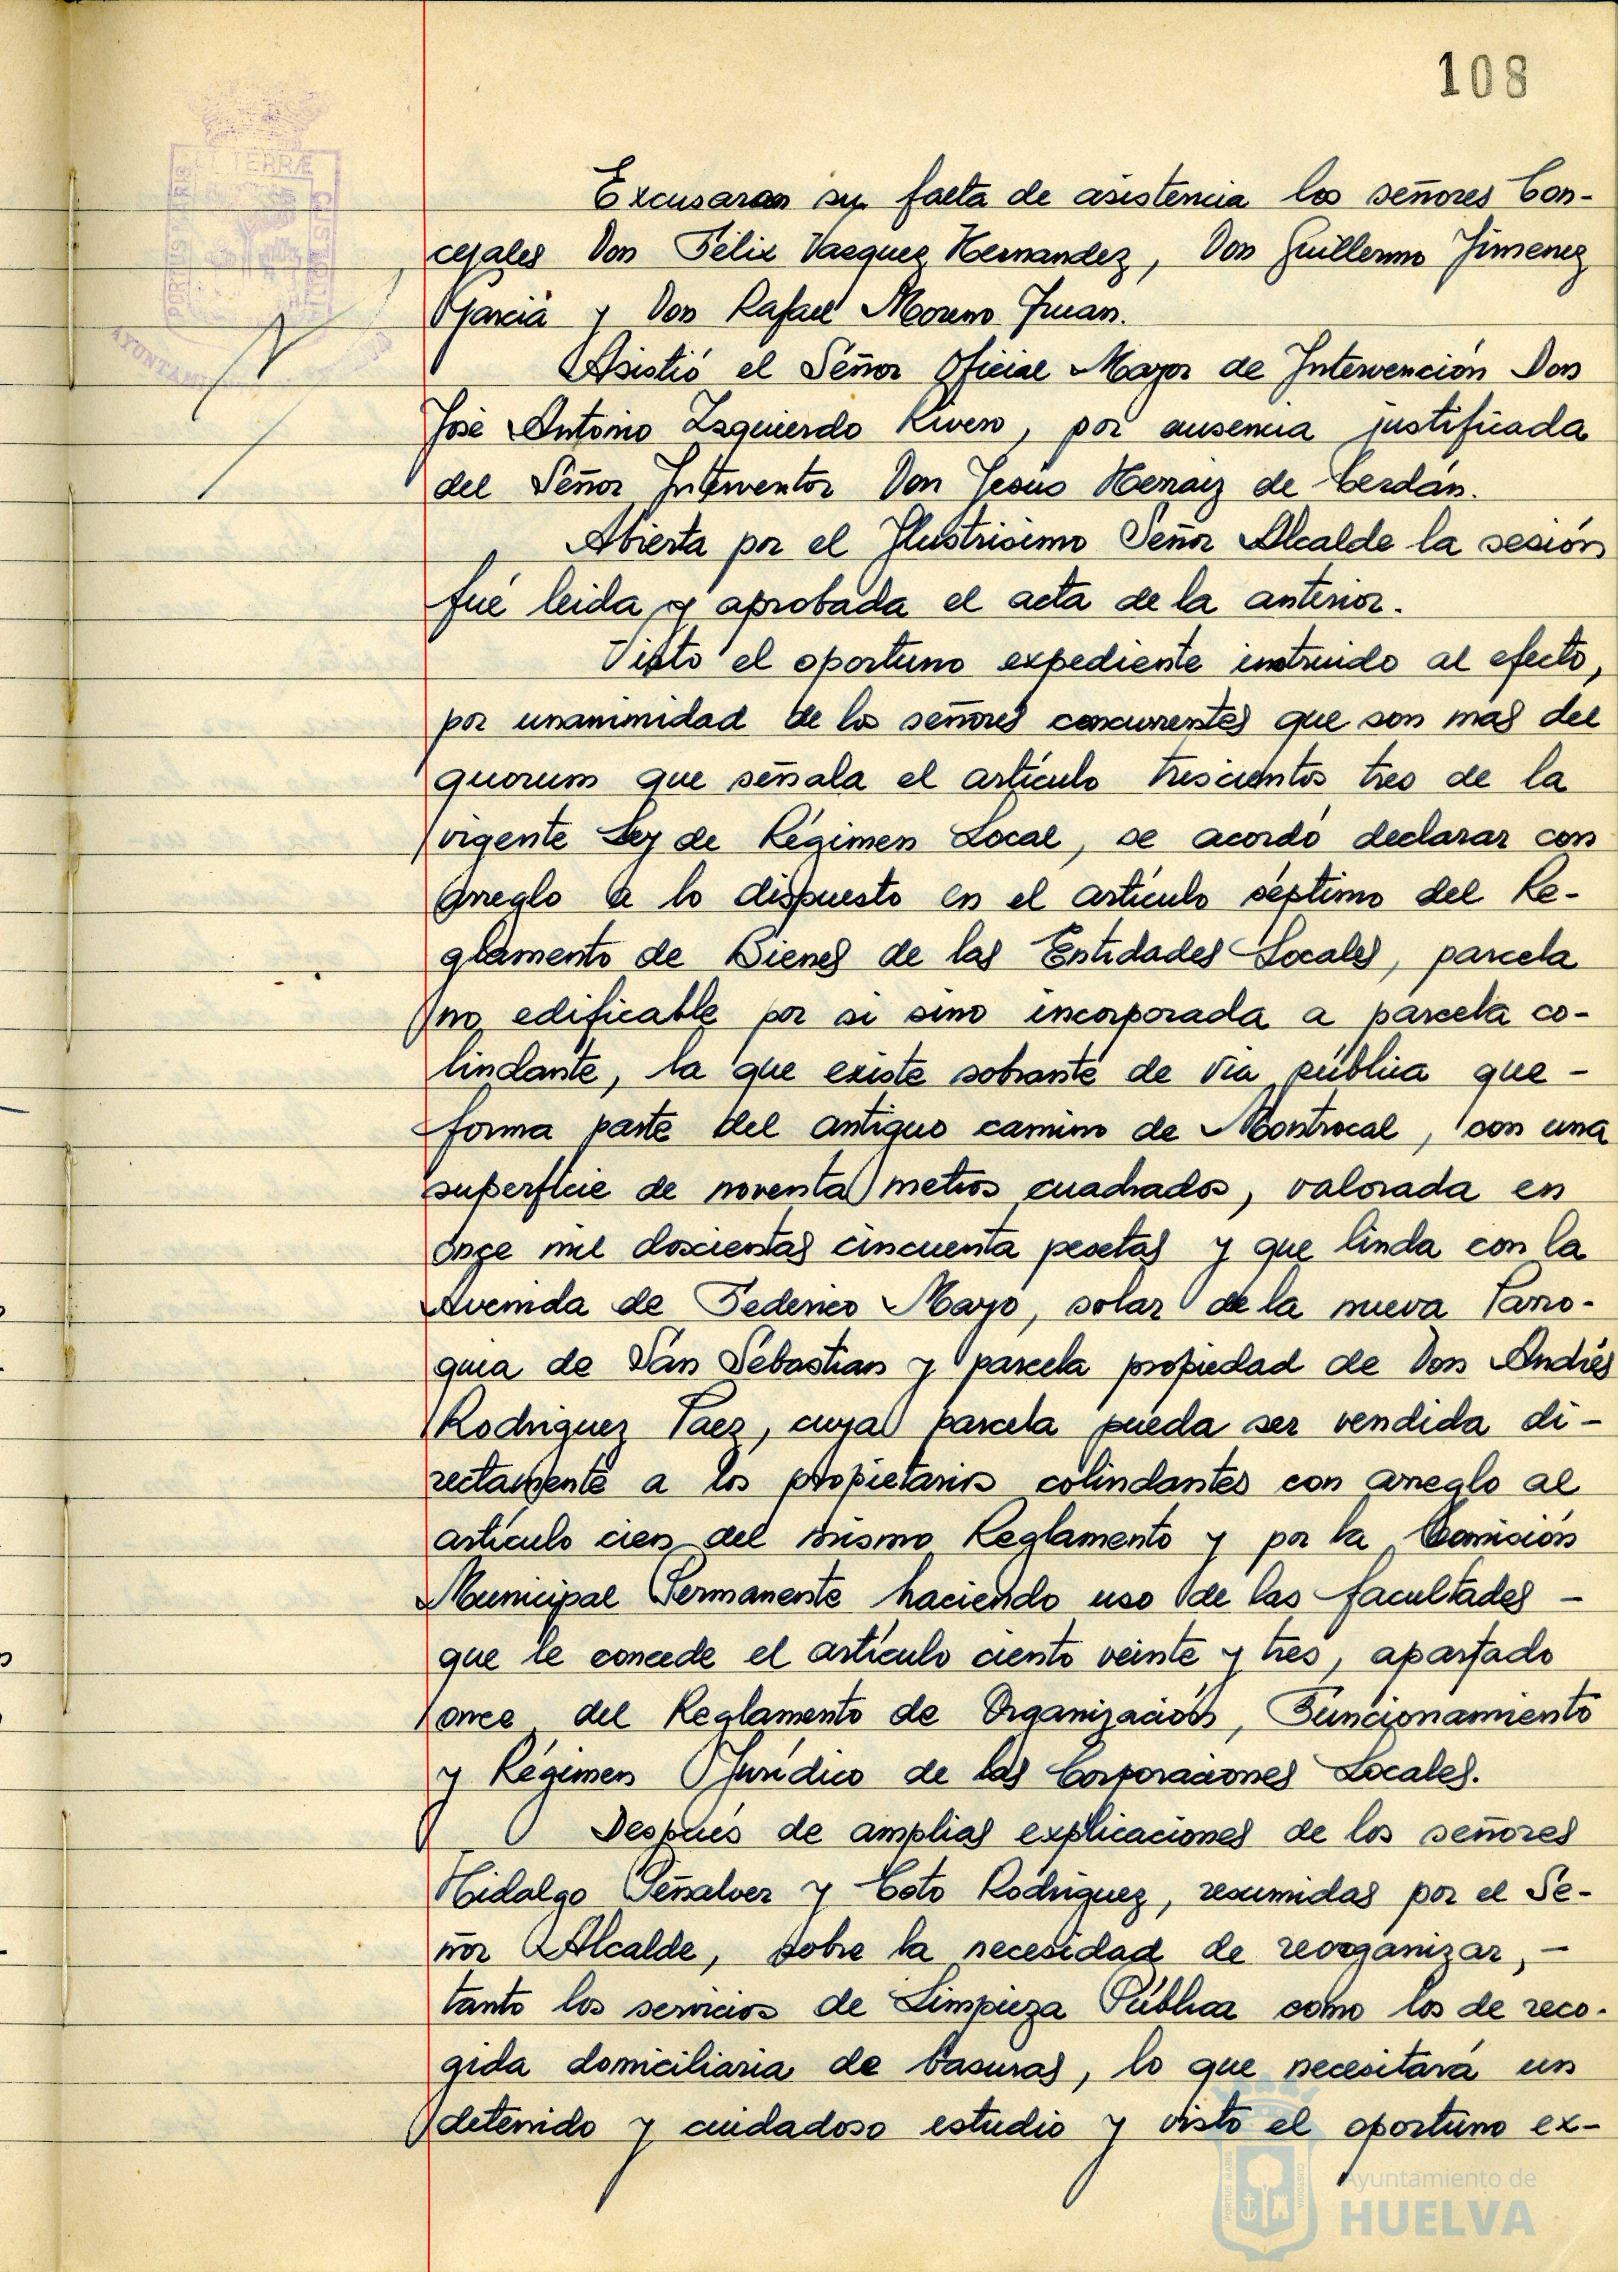 108
TERRÆ
PORTUS MARIS
CUSTODIA
AYUNTAM
Excusaron su falta de asistencia los señores Con-
cejales Don Félix Vazquez Hernandez, Don Guillermo Jimenez
Garcia y Don Rafael Moreno Juan.
Asistió el Señor Oficial Mayor de Intervención Don
José Antonio Izquierdo Rivero, por ausencia justificada
del Señor Interventor Don Jesús Hernaiz de Cerdán.
Abierta por el Ilustrisimo Señor Alcalde la sesión
fué leida y aprobada el acta de la anterior.
Visto el oportuno expediente instruido al efecto,
por unanimidad de los señores concurrentes que son mas del
quorum que señala el artículo trescientos tres de la
vigente Ley de Régimen Local, se acordó declarar con
arreglo a lo dispuesto en el artículo séptimo del Re-
glamento de Bienes de las Entidades Locales, parcela
no edificable por si sino incorporada a parcela co-
lindante, la que existe sobrante de via pública que -
forma parte del antiguo camino de Montrocal, con una
superficie de noventa metros cuadrados, valorada en
once mil doscientas cincuenta pesetas y que linda con la
Avenida de Federico Mayo, solar de la nueva Parro-
quia de San Sebastian y parcela propiedad de Don Andrés
Rodriguez Paez, cuya parcela pueda ser vendida di-
rectamente a los propietarios colindantes con arreglo al
artículo cien del mismo Reglamento y por la Comisión
Municipal Permanente haciendo uso de las facultades -
que le concede el artículo ciento veinte y tres, apartado
once del Reglamento de Organización, Funcionamiento
y Régimen Jurídico de las Corporaciones Locales.
Después de amplias explicaciones de los señores
Hidalgo Peñalver y Coto Rodriguez, resumidas por el Se-
ñor Alcalde, sobre la necesidad de reorganizar, -
tanto los servicios de Limpieza Pública como los de reco-
gida domiciliaria de basuras, lo que necesitará un
detenido y cuidadoso estudio y visto el oportuno ex-
PORTUS MARIS
CUSTODIA
Ayuntamiento de
HUELVA